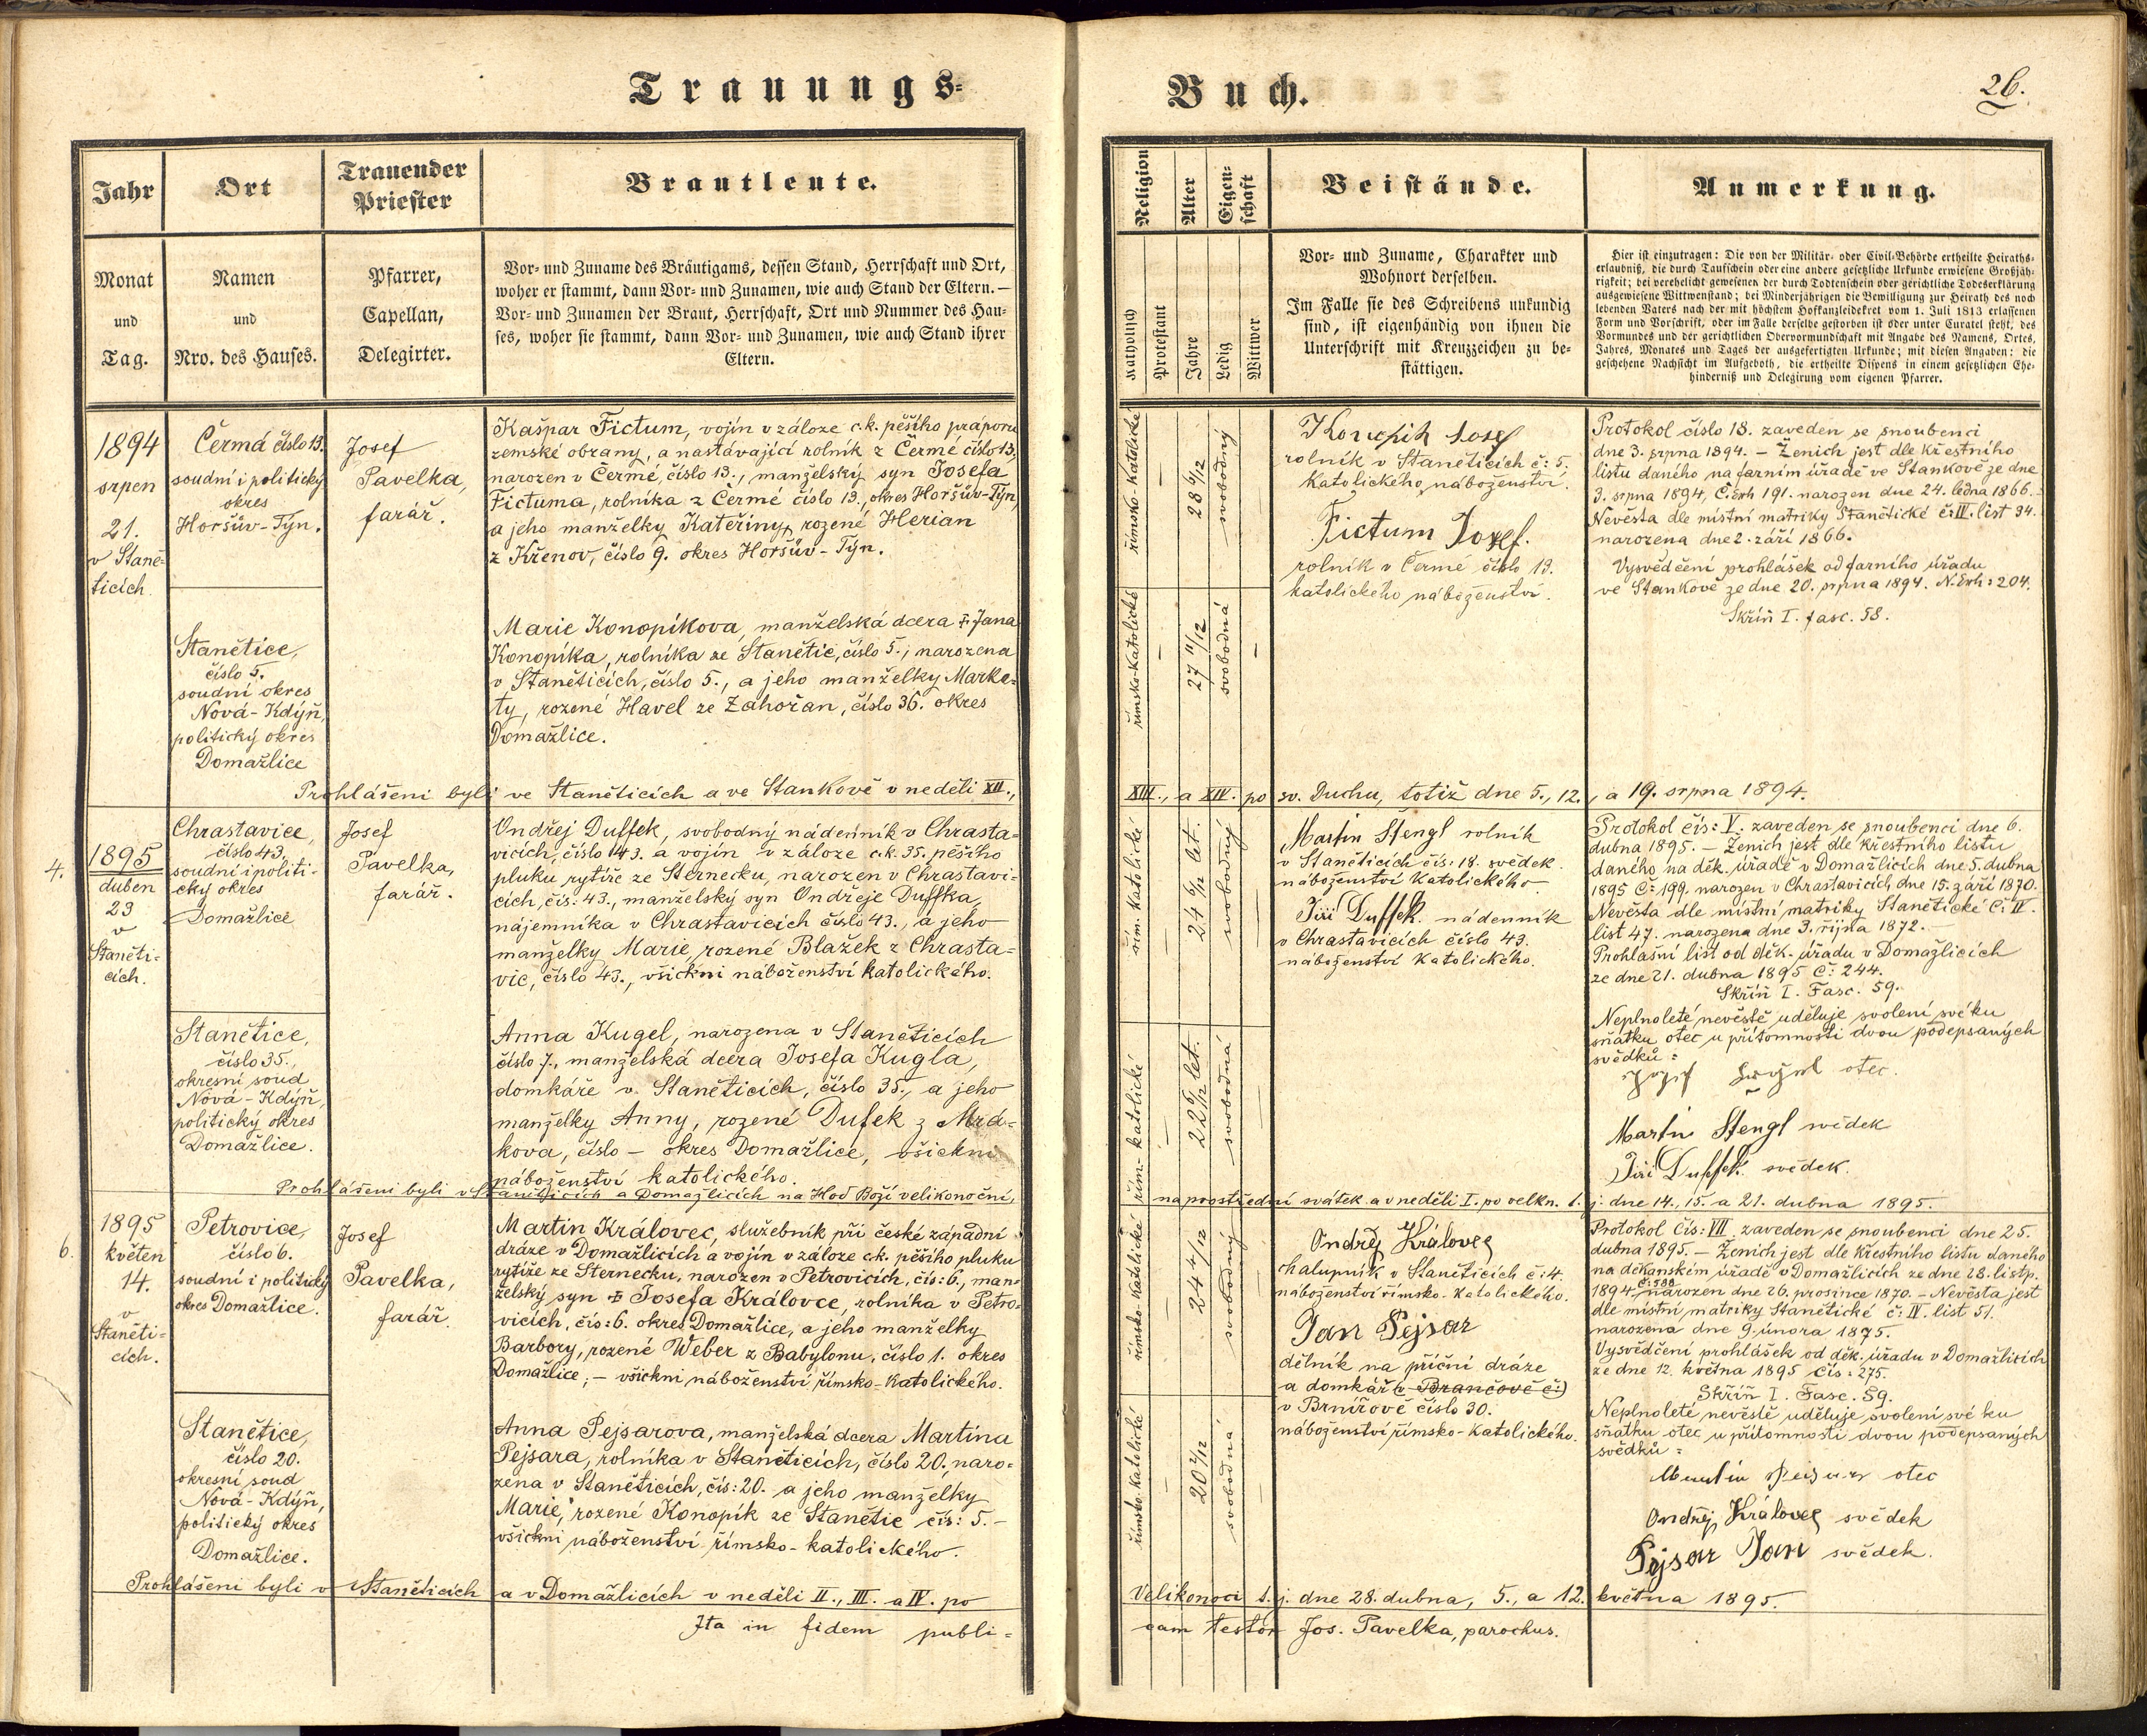 Trauungs-
Jahr
Ort
Trauender
Priester
Brautleute.
Monat
und
Tag.
Namen
und
Nro. des Hauses.
Pfarrer,
Capellan,
Delegirter.
Vor- und Zuname des Bräutigams, dessen Stand, Herrschaft und Ort,
woher er stammt, dann Vor- und Zunamen, wie auch Stand der Eltern.—
Vor- und Zunamen der Braut, Herrschaft, Ort und Nummer des Hau-
ses, woher sie stammt, dann Vor- und Zunamen, wie auch Stand ihrer
Eltern.
1894
srpen
21.
v Staně-
ticích.
Čermá číslo 13.
soudní i politický
okres
Horšův-Týn.
Josef
Pavelka,
farář.
Kašpar Fictum, vojín v záloze c.k. pěšího práporu
zemské obrany, a nastávající rolník z Čermé číslo 13,
narozen v Čermé, číslo 13., manželský syn Josefa
Fictuma, rolníka z Čermé číslo 13., okres Horšův-Týn,
a jeho manželky Kateřiny, rozené Herian
z Křenov, číslo 9. okres Horšův-Týn.
Stanětice,
číslo 5.
soudní okres
Nová-Kdýň,
politický okres
Domažlice
Marie Konopíkova, manželská dcera † Jana
Konopíka, rolníka ze Stanětic, číslo 5., narozena
v Staněticích, číslo 5., a jeho manželky Marke-
ty, rozené Havel ze Zahořan, číslo 36. okres
Domažlice.
Prohlášeni byli ve Staněticích a ve Stankově v neděli XII.,
4.
1895
duben
23
v
Staněti-
cích.
Chrastavice,
číslo 43,
soudní i politi-
cký okres
Domažlice
Josef
Pavelka,
farář.
Ondřej Duffek, svobodný nádenník v Chrasta-
vicích, číslo 143. a vojín v záloze c.k. 35. pěšího
pluku rytíře ze Sternecku, narozen v Chrastavi-
cích, čís: 43., manželský syn Ondřeje Duffka,
nájemníka v Chrastavicích číslo 43., a jeho
manželky Marie, rozené Blažek z Chrasta-
vic, číslo 43., všickni náboženství katolického.
Stanětice,
číslo 35.,
okresní soud
Nová-Kdýň,
politický okres
Domažlice.
Anna Kugel, narozena v Staněticích
číslo 7., manželská dcera Josefa Kugla,
domkáře v Staněticích, číslo 35., a jeho
manželky Anny, rozené Dufek z Mrá-
kova, číslo – okres Domažlice, všickni
náboženství katolického.
Prohlášeni byli v Staněticích a Domažlicích na Hod Boží velikonoční,
6.
1895
květen
14.
v
Staněti-
cích.
Petrovice,
číslo 6.
soudní i politický
okres Domažlice.
Josef
Pavelka,
farář.
Martin Královec, služebník při české západní
dráze v Domažlicích a vojín v záloze c.k. pěšího pluku
rytíře ze Sternecku, narozen v Petrovicích, čís: 6., man-
želský syn † Josefa Královce, rolníka v Petro-
vicích, čís: 6. okres Domažlice, a jeho manželky
Barbory, rozené Weber z Babylonu, číslo 1. okres
Domažlice; – všickni náboženství římsko-katolického.
Stanětice,
číslo 20.
okresní soud
Nová-Kdýň,
politický okres
Domažlice.
Anna Pejsarova, manželská dcera Martina
Pejsara, rolníka v Staněticích, číslo 20., naro-
zena v Staněticích, čís: 20. a jeho manželky
Marie, rozené Konopík ze Stanětic čís: 5. –
všickni náboženství římsko-katolického.
Prohlášeni byli v Staněticích a v Domažlicích v neděli II., III. a IV. po
Ita in fidem publi-
Buch.
26.
Religion
Alter
Eigen-
schaft
Beistände.
Anmerkung.
Katholisch
Protestant
Jahre
Ledig
Wittwer
Vor- und Zuname, Charakter und
Wohnort derselben.
Im Falle sie des Schreibens unkundig
sind, ist eigenhändig von ihnen die
Unterschrift mit Kreuzzeichen zu be-
stättigen.
Hier ist einzutragen: Die von der Militär- oder Civil-Behörde ertheilte Heiraths-
erlaubniß, die durch Taufschein oder eine andere gesetzliche Urkunde erwiesene Großjäh-
rigkeit; bei verehelicht gewesenen der durch Todtenschein oder gerichtliche Todeserklärung
ausgewiesene Wittwenstand; bei Minderjährigen die Bewilligung zur Heirath des noch
lebenden Vaters nach der mit höchstem Hofkanzleidekret vom 1. Juli 1813 erlassenen
Form und Vorschrift, oder im Falle derselbe gestorben ist oder unter Curatel steht, des
Vormundes und der gerichtlichen Obervormundschaft mit Angabe des Namens, Ortes,
Jahres, Monates und Tages der ausgefertigten Urkunde; mit diesen Angaben: die
geschehene Nachsicht im Aufgeboth, die ertheilte Dispens in einem gesetzlichen Ehe-
hinderniß und Delegirung vom eigenen Pfarrer.
římsko-katolické
–
28 6/12
svobodný
Konopik Josef
rolník v Staněticích č: 5.
katolického náboženství.
Fictum Jozef.
rolník v Čermé číslo 13.
katolického náboženství.
Protokol číslo 18. zaveden se snoubenci
dne 3. srpna 1894. – Ženich jest dle křestního
listu daného na farním úřadě ve Stankově ze dne
3. srpna 1894, Č. Erh 191. narozen dne 24. ledna 1866. –
Nevěsta dle místní matriky Stanětické č: III. list 34.
narozena dne 2. září 1866.
Vysvědčení prohlášek od farního úřadu
ve Stankově ze dne 20. srpna 1894. N. Erh: 204.
Skříň I. fasc. 58.
římsko-katolické
–
27 11/12
svobodná
–
XIII., a XIV. po sv. Duchu, totiž dne 5., 12., a 19. srpna 1894.
řím. katolické
–
24 6/12 let.
svobodný
Martin Stengl rolník
v Staněticích čís: 18. svědek
náboženství katolického
Jiří Duffek. nádenník
v Chrastavicích číslo 43.
náboženství katolického.
Protokol čís: V. zaveden se snoubenci dne 6.
dubna 1895. – Ženich jest dle křestního listu
daného na děk. úřadě v Domažlicích dne 5. dubna
1895 Č: 199. narozen v Chrastavicích dne 15. září 1870.
Nevěsta dle místní matriky Stanětické č: IV.
list 47. narozena dne 3. října 1872. –
Prohlášní list od děk. úřadu v Domažlicích
ze dne 21. dubna 1895 Č: 244.
Skříň I. Fasc. 59.
Neplnoleté nevěstě uděluje svolení své ku
sňatku otec u přítomnosti dvou podepsaných
svědků:
otec.
Martin Stengl svědek
Jiří Duffek. svědek.
řím- katolické
–
22 6/12 let.
svobodná
–
na prostřední svátek a v neděli I. po velkn. t. j. dne 14., 15. a 21. dubna 1895.
římsko-katolické
–
24 4/12
svobodný
Ondřej Královec
chalupník v Staněticích č: 4.
náboženství římsko-katolického.
Jan Pejsar
dělník na příční dráze
a domkář (v Brančově č:)
v Brnířově číslo 30.
náboženství římsko-katolického.
Protokol čís: VII. zaveden se snoubenci dne 25.
dubna 1895. – Ženich jest dle křestního listu daného
na děkanském úřadě v Domažlicích ze dne 28. listp.
1894 narozen dne 26. prosince 1870. – Nevěsta jest
dle místní matriky Stanětické č: IV. list 51.
narozena dne 9. února 1875.
Vysvědčení prohlášek od děk. úřadu v Domažlicích
ze dne 12. května 1895 Čís: 275.
Skříň I. Fasc. 59.
Neplnoleté nevěstě uděluje svolení své ku
sňatku otec u přítomnosti dvou podepsaných
svědků:
Martin Pejsar otec
Ondřej Královec svědek
Pejsar Jan svědek.
římsko-katolické
–
20 2/12
svobodná
–
Velikonoci t. j. dne 28. dubna, 5., a 12. května 1895.
cam testor Jos. Pavelka, parochus.